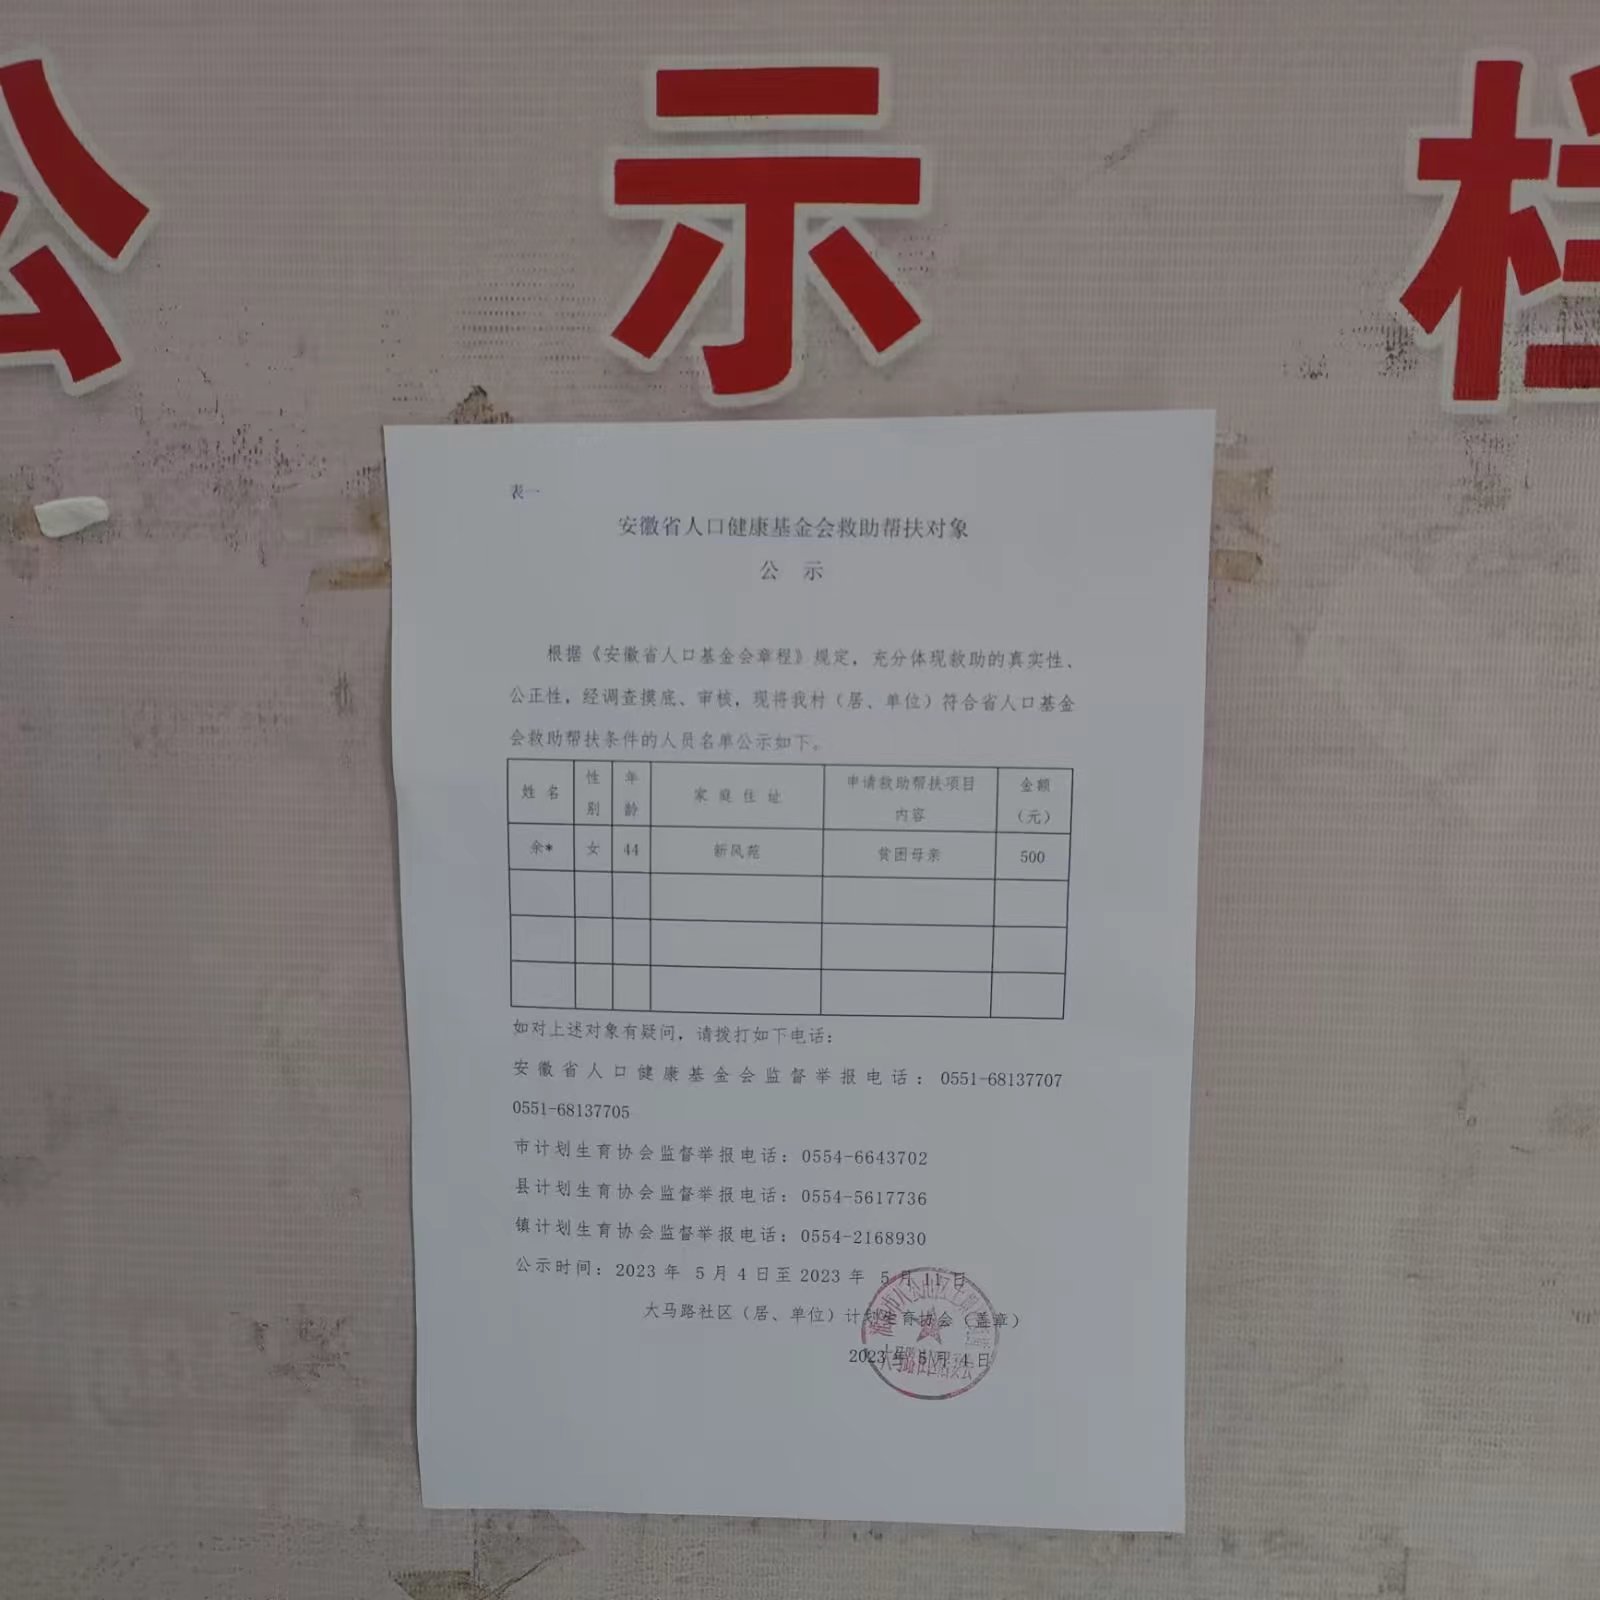 公示栏
表一
安徽省人口健康基金会救助帮扶对象
公 示
根据《安徽省人口基金会章程》规定，充分体现救助的真实性、
公正性，经调查摸底、审核，现将我村（居、单位）符合省人口基金
会救助帮扶条件的人员名单公示如下。
姓 名 性别 年龄 家 庭 住 址 申请救助帮扶项目内容 金额（元）
余* 女 44 新风苑 贫困母亲 500
如对上述对象有疑问，请拨打如下电话：
安徽省人口健康基金会监督举报电话：0551-68137707
0551-68137705
市计划生育协会监督举报电话：0554-6643702
县计划生育协会监督举报电话：0554-5617736
镇计划生育协会监督举报电话：0554-2168930
公示时间：2023 年 5 月 4 日至 2023 年 5 月 11 日
大马路社区（居、单位）计划生育协会（盖章）
2023 年 5 月 4 日
大马路社区居委会